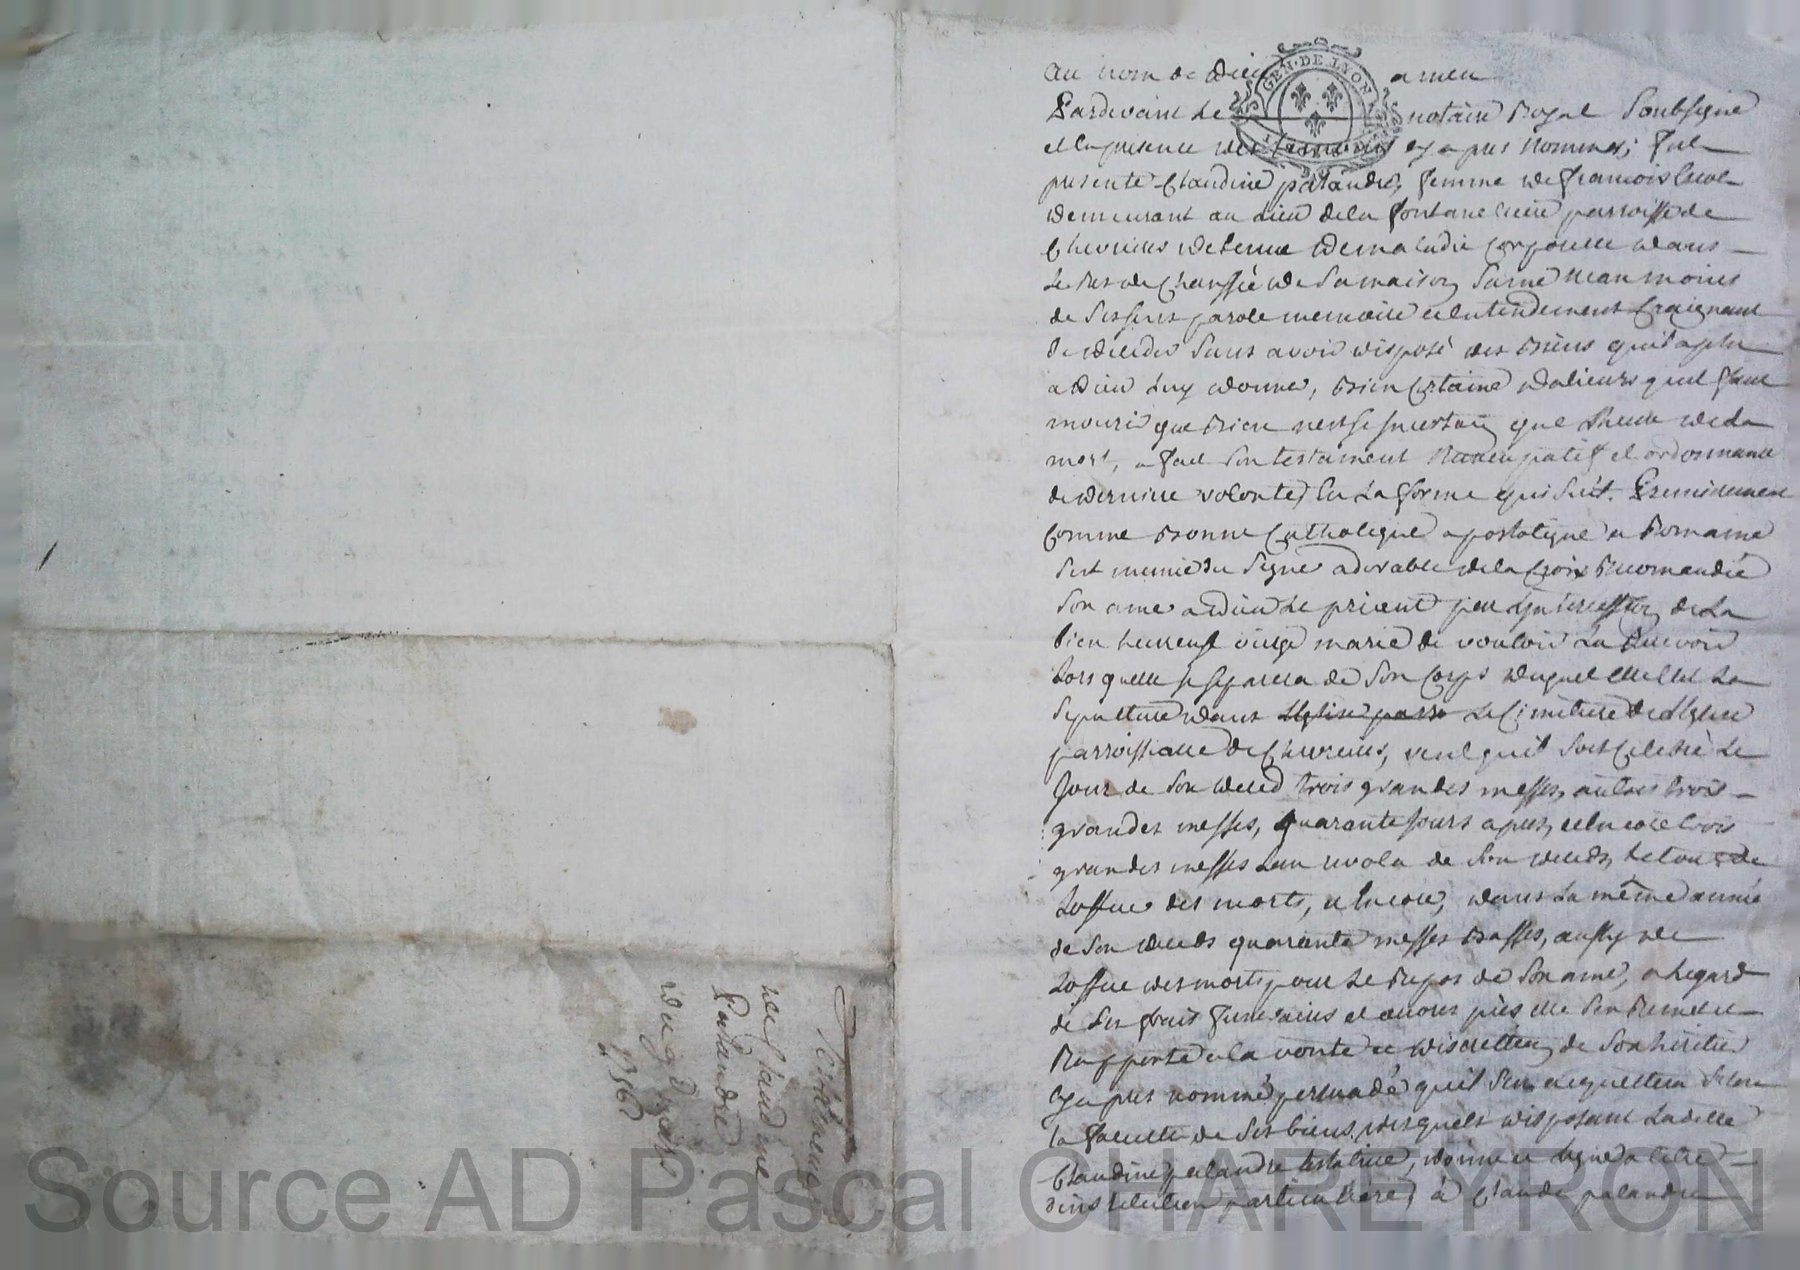 au nom de Dieu amen
GEN. DE LYON
Pardevant Le notaire Royal Soubsigné
et En presence des temoins cy apres nommes; fut
presente Claudine palandre, femme de françois
demeurant au Lieu de la fontane parroisse de
Chevrieres detenue de maladie corporelle dans
Le Res de Chaussée de Sa maison, Saine neanmoins
de Ses Sens parole memoire et entendement Craignant
de deceder Sans avoir disposé des Biens quil a plu
a Dieu Luy donner, Bien Certaine dalieurs quil faut
mourir que Rien nest Si Incertain que Lheure de La
mort, a fait Son testament Nuncupatif et ordonnance
de derniere volonté, En La forme qui Suit. Premierement
Comme Bonne Catholique apostolique et Romaine
Sest munie du Signe adorable de la Croix Recomandée
Son ame a Dieu Le priant par Lintercession de La
bien heureuse vierge marie de vouloir La Recevoir
Lors quelle se Separera de Son Corps duquel Elle Elit La
Sepulture dans Leglise parro Le Cimetiere de L'Eglise
parroissialle de Chevrieres, veut quil Soit Celebré Le
Jour de Son deced trois grandes messes, autres trois
grandes messes, quarante Jours apres, et Encore trois
grandes messes Lan revolu de Son deceds, Le tout de
Loffice des morts, et Encore, dans La même année
de Son deceds quarante messes Basses, aussy de
Loffice des morts pour Le Repos de Son ame, a Legard
de Ses frais funeraires et œuvres pies elle Sen Remet et
Rapporte a la volonté et discrettion de Son heritier
Cy apres nommé persuadé quil Sen acquittera Selon
la faculté de Ses biens, desquels disposant Ladite
Claudine palandre testatrice, donne et Legue a titre
dinstitution particuliere, à Claude palandre
Testament
de Claudine
Palandre
du 9 mars
1760
Source AD Pascal CHAREYRON